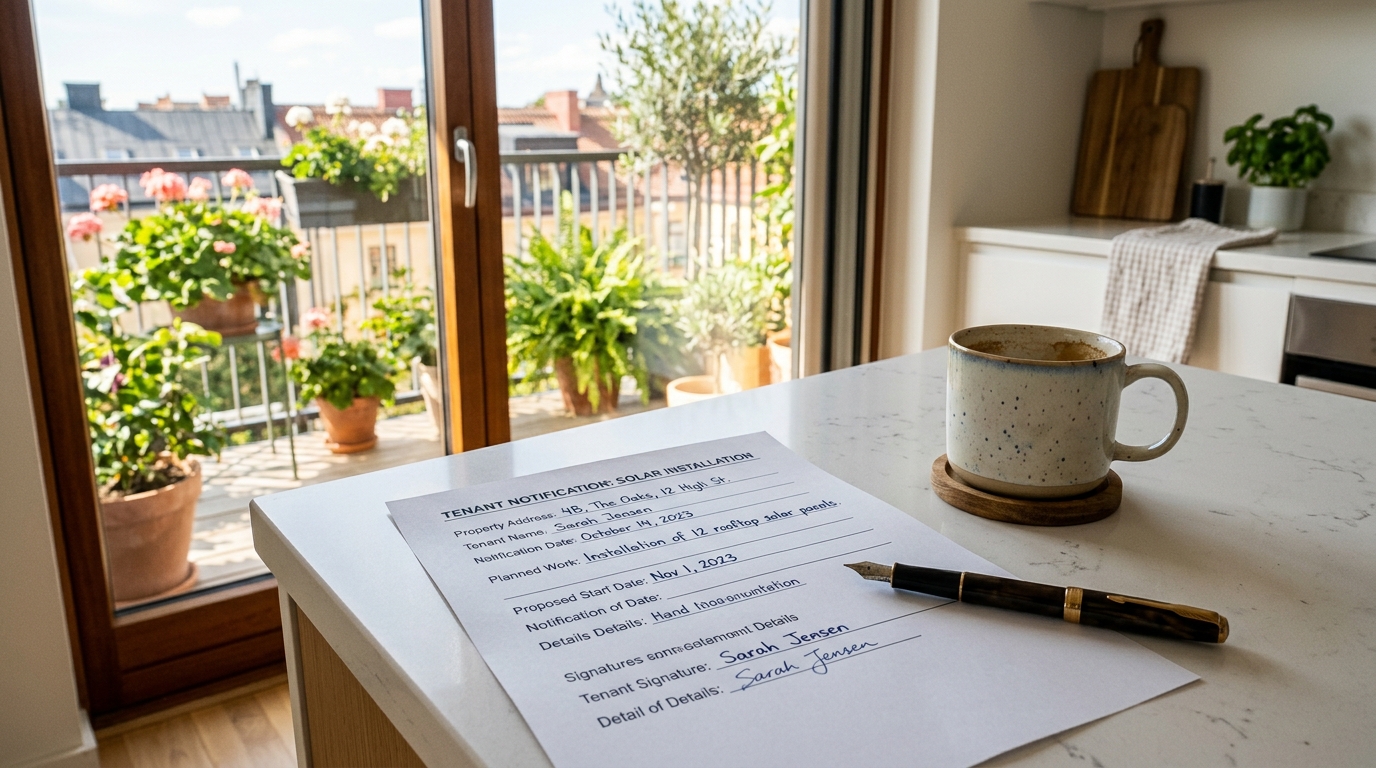 TENANT NOTIFICATION: SOLAR INSTALLATION
Property Address: 4B, The Oaks, 12 High St.
Tenant Name: Sarah Jensen
Notification Date: October 14, 2023
Planned Work: Installation of 12 rooftop solar panels.
Proposed Start Date: Nov 1, 2023
Notification of Date:
Details Details: Hand
Signatures Details
Tenant Signature: Sarah Jensen
Detail of Details: Sarah Jensen